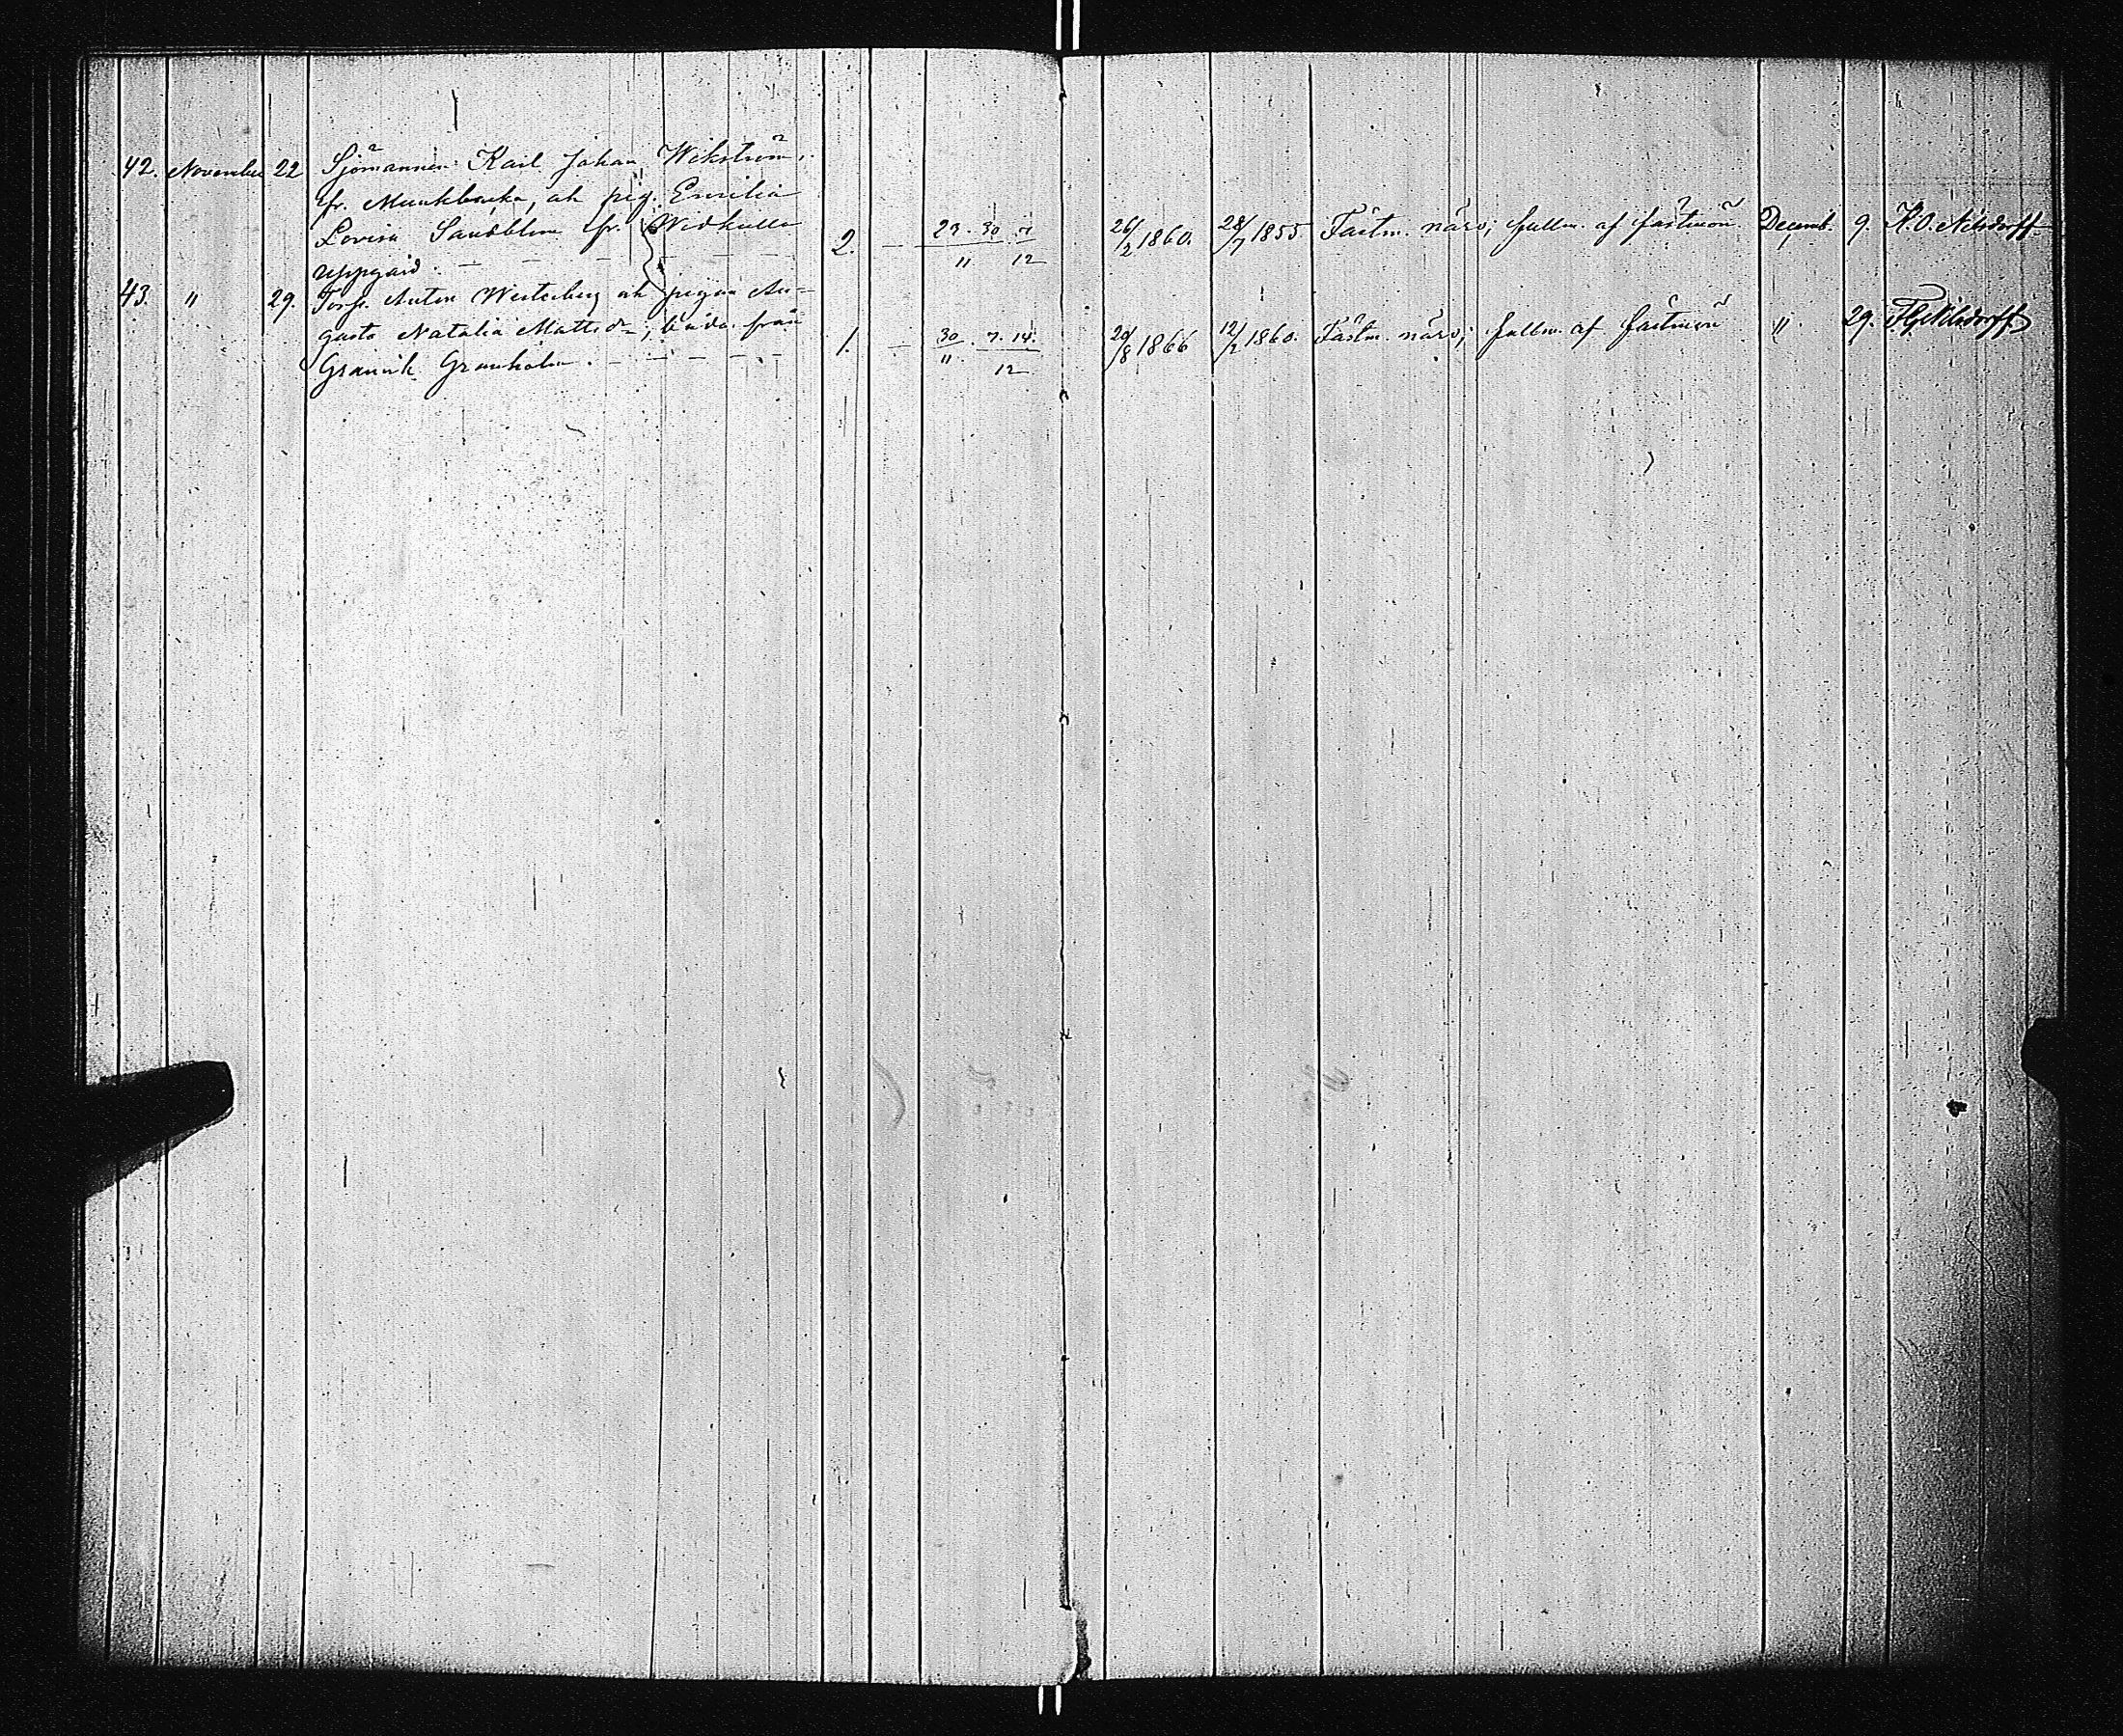 42. November 22 Sjömannen Karl Johan Wikström,
fr. Munkbacka, oh pig. Emilia
Lovisa Sandblom fr. Widkulla 2. — 23. 30. 7 26/2 1860. 28/7 1855 Fästm. närv; fullm. af fästmön Decemb. 9. K. O. Nilsdorff
11 12
Uppgård.
43. " 29. Torp. Anton Westerberg oh pigan Au-
gusta Natalia Mattsdr, båda från 1. — 30. 7. 14. 20/8 1866 12/2 1860. Fästm. närv; fullm. af fästmön " 29. Nilsdorff
11. 12
Granvik Granholm.